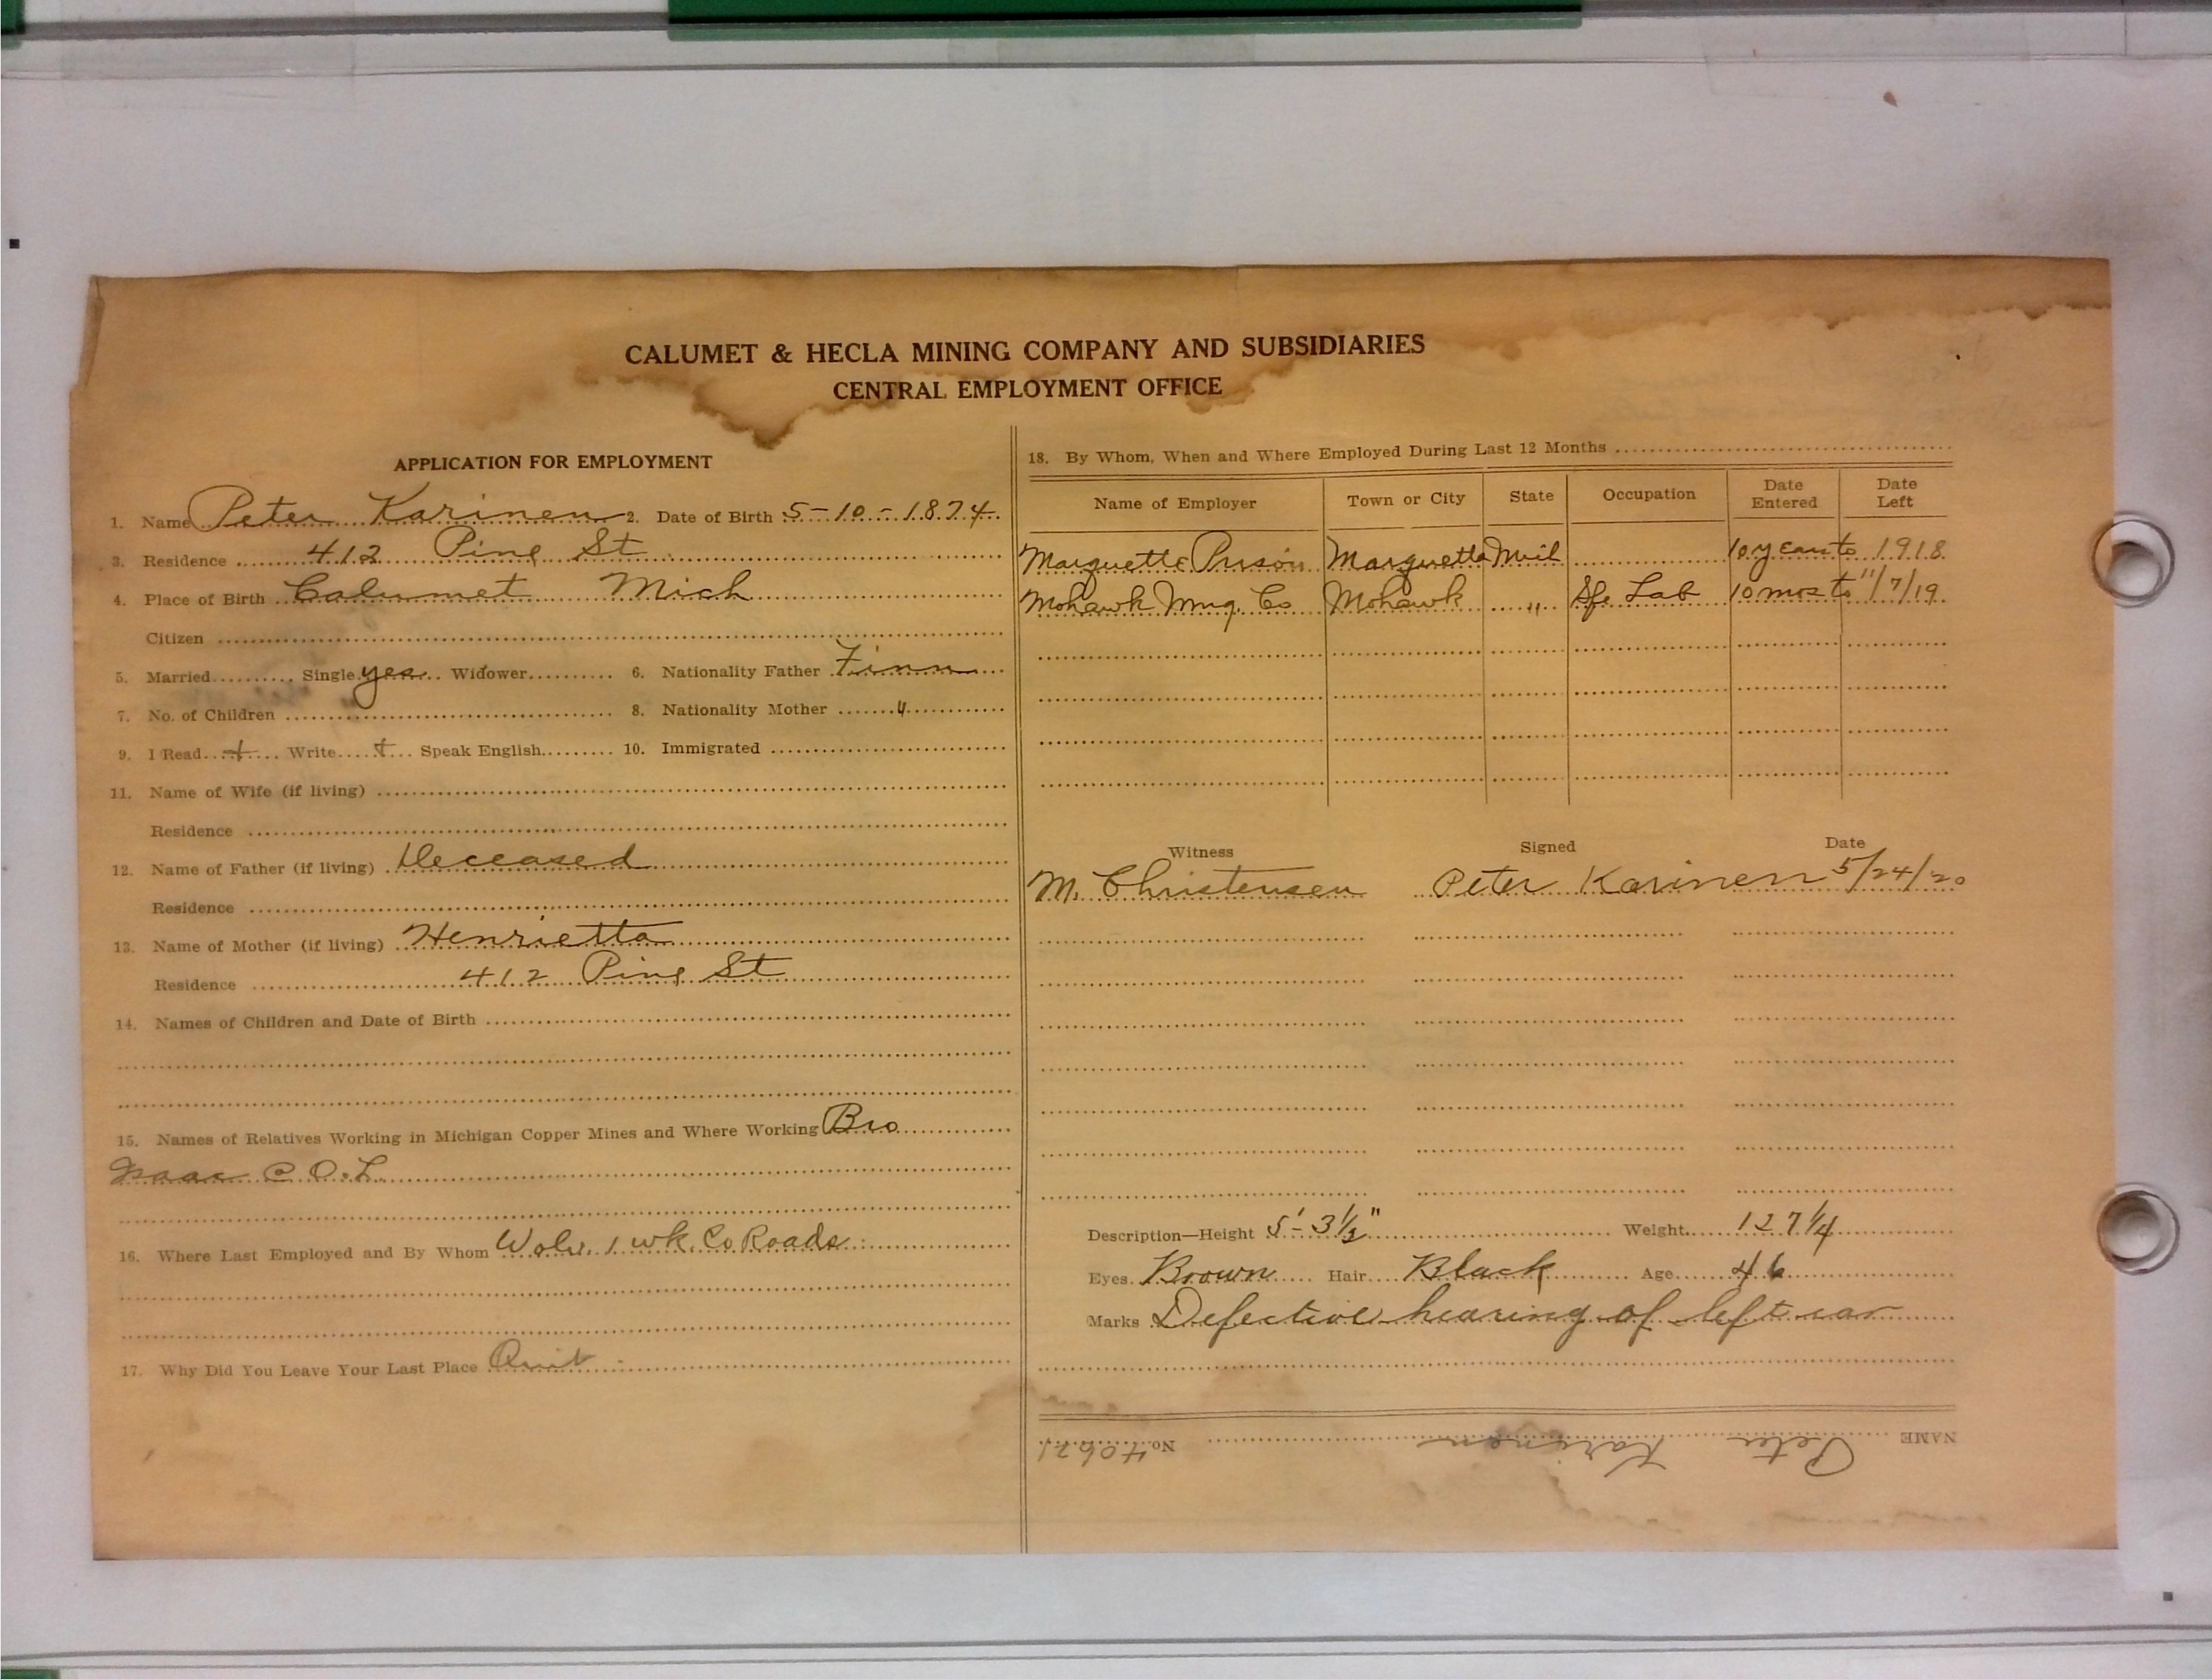 CALUMET & HECLA MINING COMPANY AND SUBSIDIARIES
CENTRAL EMPLOYMENT OFFICE
APPLICATION FOR EMPLOYMENT
1. Name Peter Karinen 2. Date of Birth 5-10-1874
3. Residence 412 Pine St
4. Place of Birth Calumet Mich
Citizen
5. Married Single yes Widower 6. Nationality Father Finn
7. No. of Children 8. Nationality Mother "
9. I Read + Write + Speak English 10. Immigrated
11. Name of Wife (if living)
Residence
12. Name of Father (if living) Deceased
Residence
13. Name of Mother (if living) Henrietta
Residence 412 Pine St
14. Names of Children and Date of Birth
15. Names of Relatives Working in Michigan Copper Mines and Where Working Bro
Isaac C.O.L.
16. Where Last Employed and By Whom Wolv. 1 wk. Co Roads
17. Why Did You Leave Your Last Place Quit
18. By Whom, When and Where Employed During Last 12 Months
Name of Employer Town or City State Occupation Date Entered Date Left
Marquette Prison Marquette Mich 10 years to 1918
Mohawk Mng. Co Mohawk " Sfc Lab 10 mos to 11/7/19
Witness Signed Date
M. Christensen Peter Karinen 5/24/20
Description—Height 5'-3½" Weight 127¼
Eyes Brown Hair Black Age 46
Marks Defective hearing of left ear
NAME Peter Karinen No. 40671